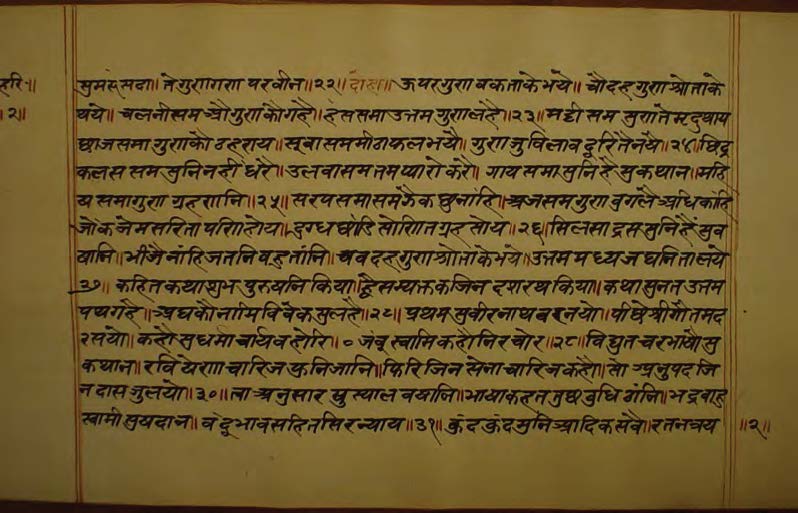 सुमहंसदा॥ तेगुणगणपरवीन॥२२॥ दोहा॥ ऊपरगुणबकताकेभये॥ चौदहगुणश्रोताके
थये॥ चलनीसमऔगुणकौगहै॥ हंससमाउत्तमगुणलहै॥२३॥ मट्टीसमसुणतेमृदुथाय
छाजसमागुणकौठहराय॥ सूवासममीठाफलभयै॥ गुणजुविलावदूरितेनयै॥२४॥ छिद्र
कलससमसुनिनहीधरै॥ उलवासमतमप्यारोकरै॥ गायसमासुनिहैसुकथान॥ महि
यसमागुणग्रहरानि॥२५॥ सरपसमासमझैकछुनांहि॥ अजसमगुणवुगलैअधिकांहि
जोंकजेमसरितापरिहोय॥ दुग्धछांडिसोणितग्रहसोय॥२६॥ सिलसाद्रससुनिहैंसुव
यानि॥ भीजैनांहिजतनिवहुतांनि॥ चवदहगुणश्रोताकेभये॥ उत्तममध्यजघनितालये
२७॥ कहितकथाशुभपुरुषनिकिया॥ द्वैसम्यक्तकजिनदशरथकिया॥ कथासुनतउत्तम
पथगहै॥ अघकौनामिविवेकसुलहै॥२८॥ प्रथमसुवीरनाथबरनयो॥ पीछेश्रीगौतमद
रसयो॥ कहौसुधर्माचार्यवहोरि॥० जंबूस्वामिकहौनिरचोर॥२९॥ विद्युतचरभाषौसु
कथान॥ रवियेणाचारिजफुनिजानि॥ फिरिजिनसेनाचारिजकहौ॥ ताअनुपदजि
नदासजुलयो॥३०॥ ताअनुसारखुस्यालवयानि॥ भाषाकहततुछबुधिठांनि॥ भद्रबाहु
स्वामीसुयदान॥ वंदूभावसहितसिरन्याय॥३१॥ कुंदकुंदमुनिआदिकसवै॥ रतनत्रय
॥२॥